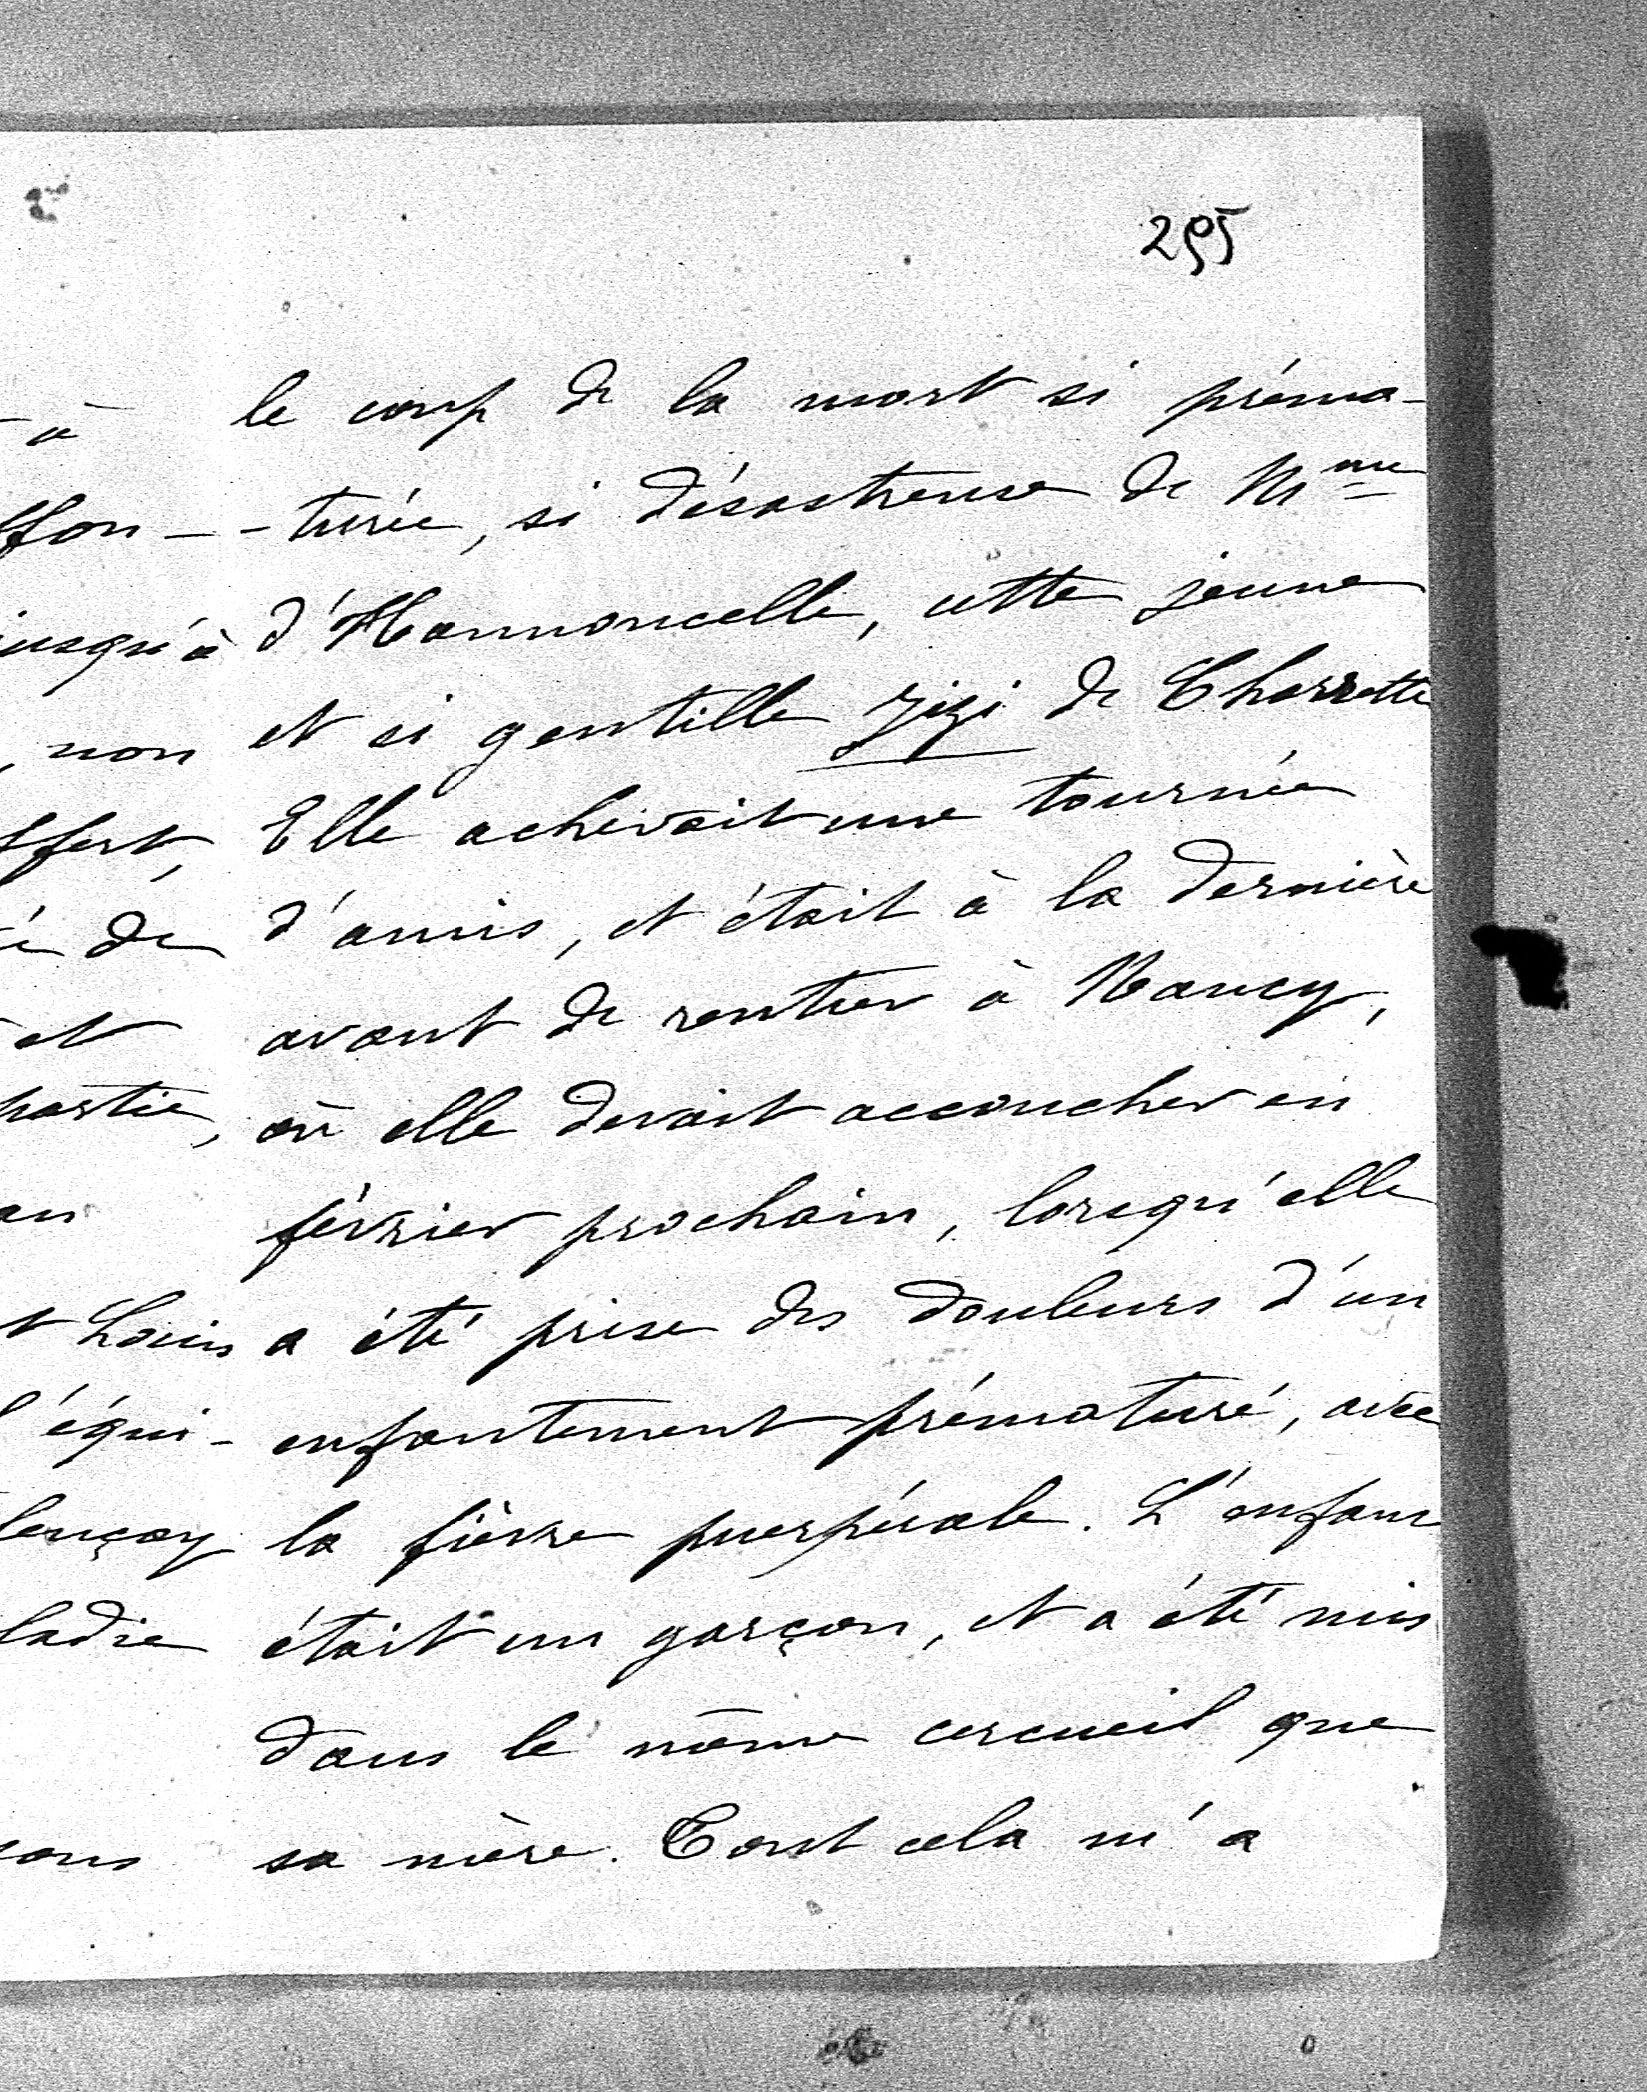 295
le coup de la mort si préma-
-turée, si désastreuse de Mme
d'Hannoncelle, cette jeune
et si gentille Zizi de Charrette
Elle achevait une tournée
d'amis, et était à la dernière
avant de rentrer à Nancy,
où elle devait accoucher en
février prochain, lorsqu'elle
a été prise des douleurs d'un
enfantement prématuré, avec
la fièvre puerpérale. L'enfant
était un garçon, et a été mis
dans le même cercueil que
sa mère. Tout cela m'a
à
ffon-
jusqu'à
, non
ffert,
é de
et
partie,
en
t Louis
l'équi-
lençay
ladie
sous